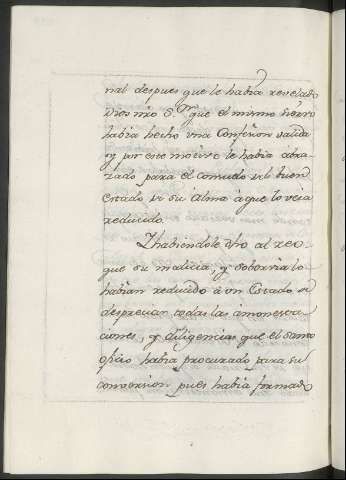 nal despues que le habia revelado
Dios nro S.or que el mismo Sierro
habia hecho una Confesion valida
y por este motivo le habia abra-
zado para el consuelo del buen
estado de su Alma à que lo veia
reducido.
Y habiendole dho al reo
que su malicia, y sobervia lo
habian reducido à un Estado de
despreciar todas las amonesta-
ciones, y diligencias que el santo
oficio habia procurado para su
conversion pues habia formado